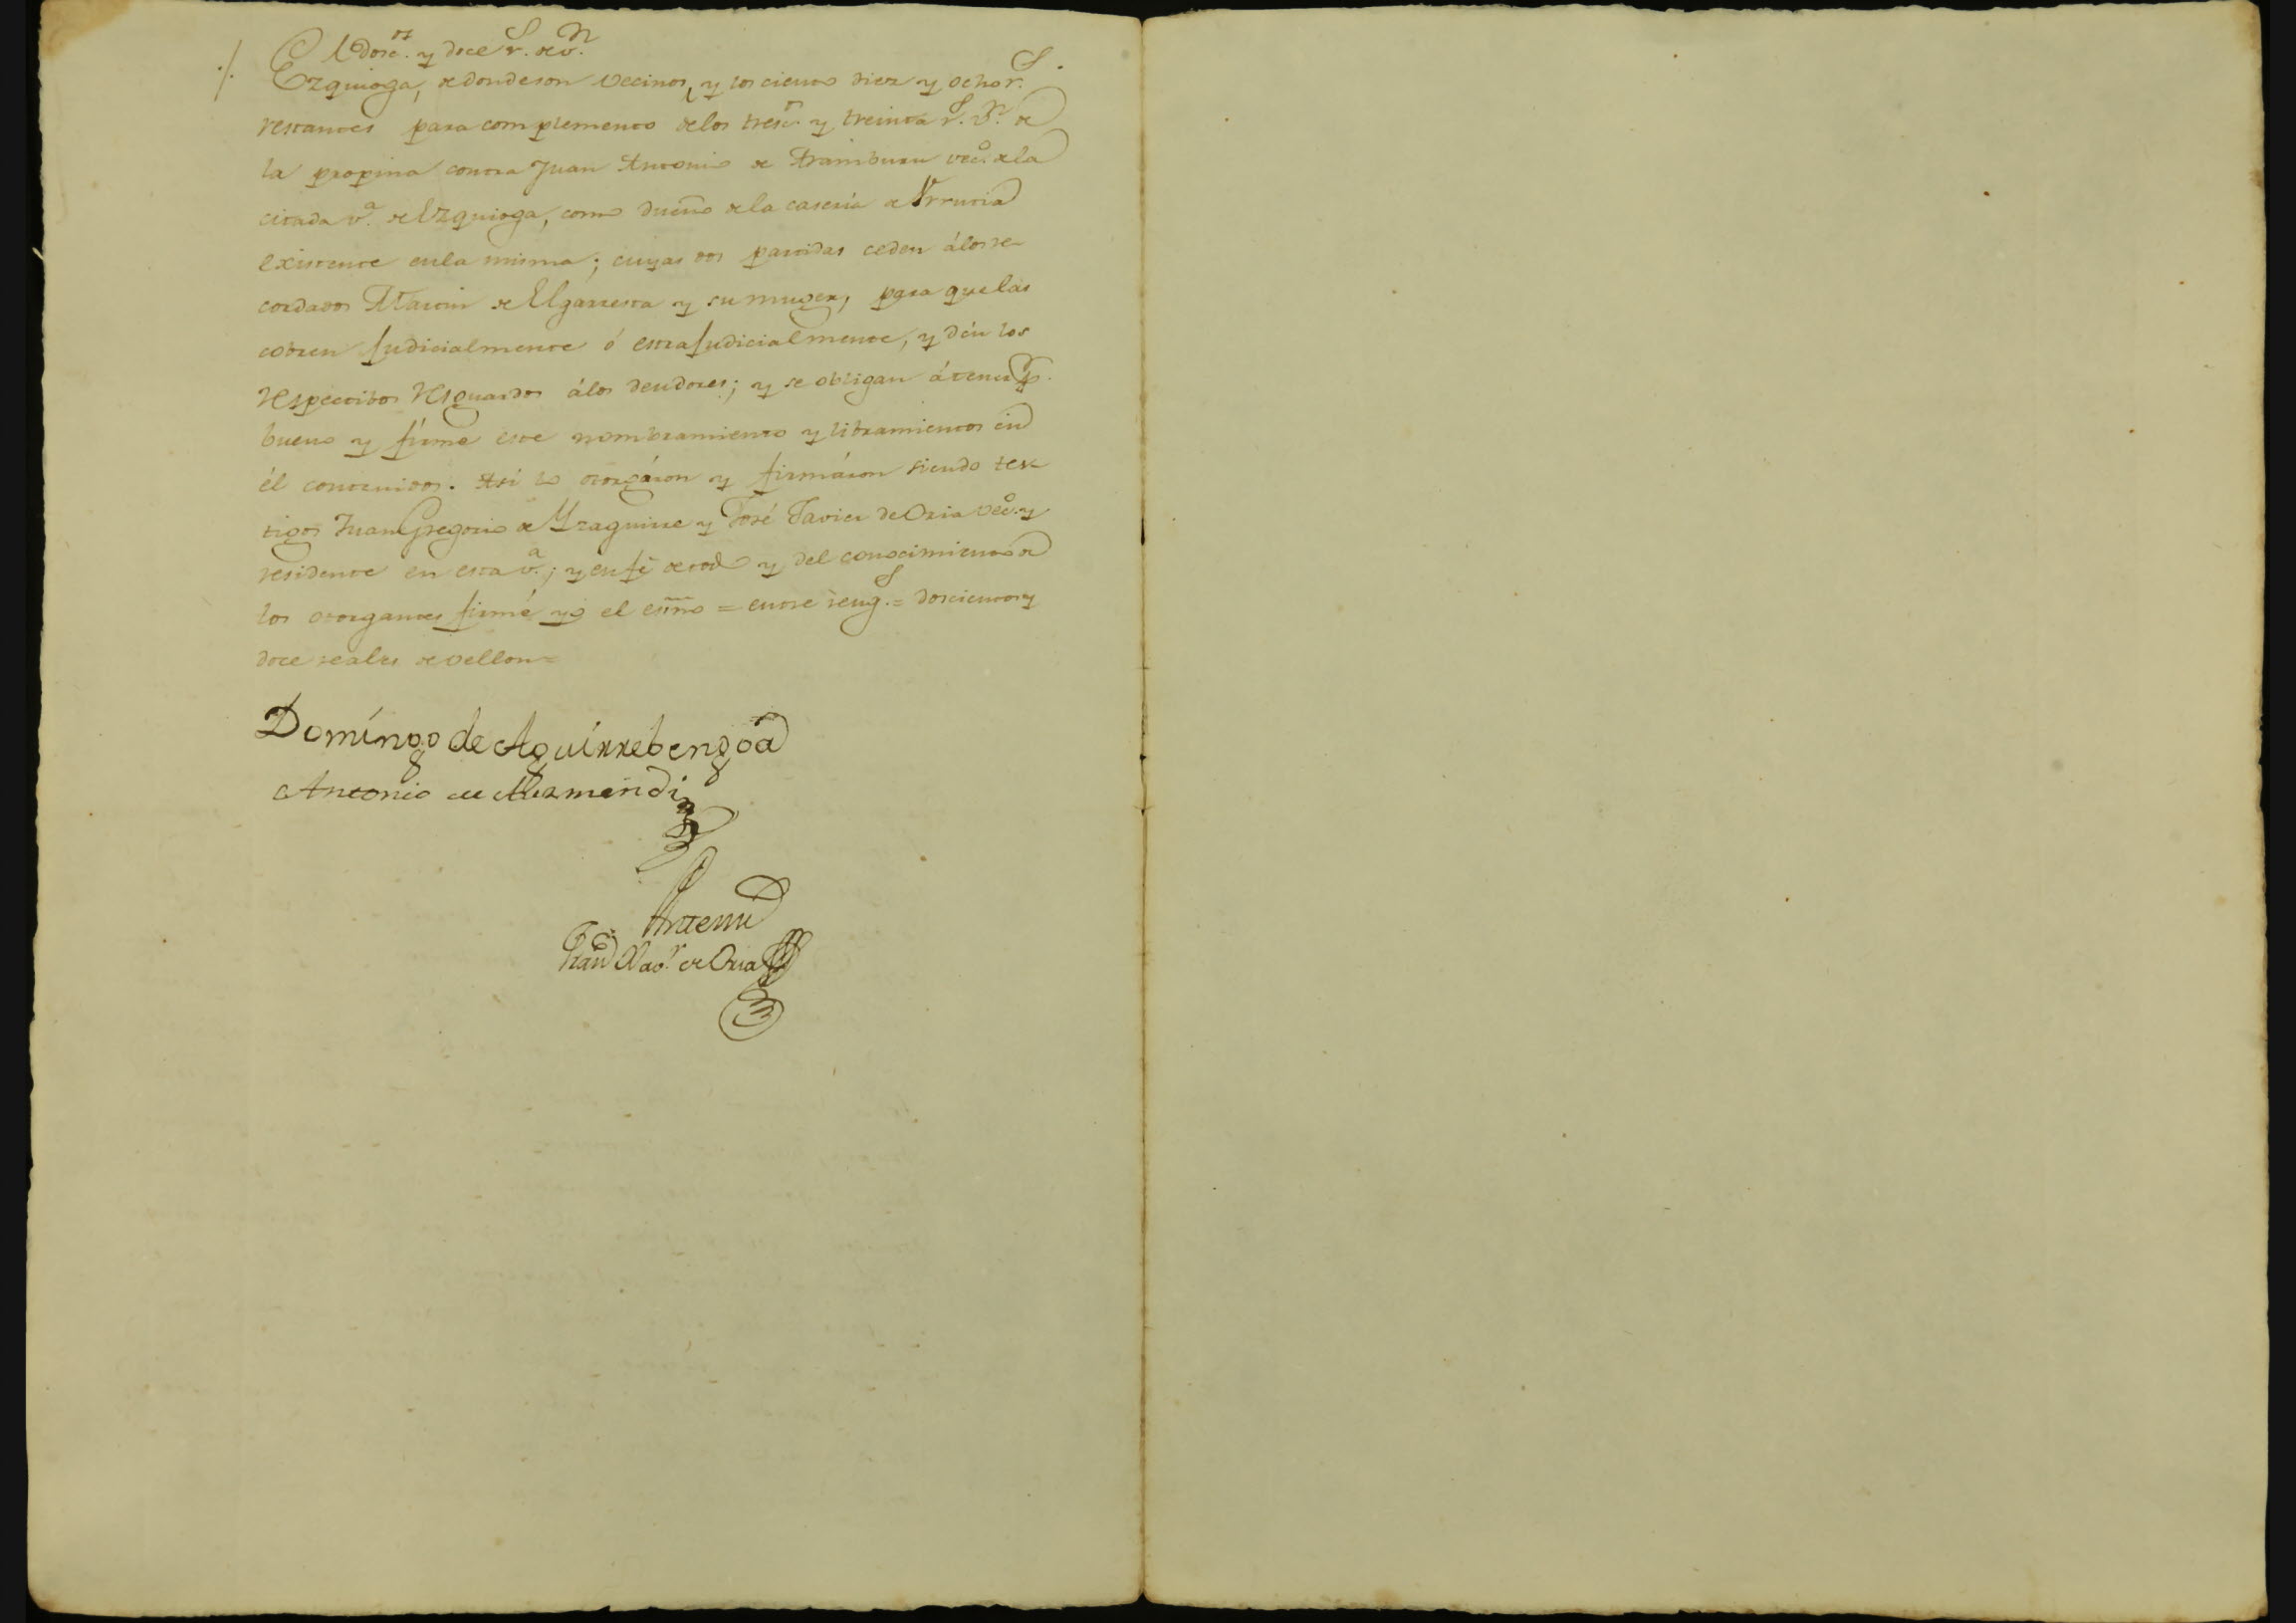 ./. dosc.tos y doce r.s de v.n
Ezquioga, de donde son vecinos, y los ciento diez y ocho r.s
restantes para complemento de los tresc.tos y treinta r.s v.n de
la propina contra Juan Antonio de Aramburu vec.o de la
citada v.a de Ezquioga, como dueño de la caseria de Urrutia
existente en la misma; cuyas dos partidas ceden á los re-
cordados Martin de Elgarresta y su muger, para que las
cobren judicialmente ó estrajudicialmente, y dén los
respectibos resguardos á los deudores; y se obligan á tener p.r
bueno y firme este nombramiento y libramientos en
él contenidos. Asi lo otorgáron y firmáron siendo tes-
tigos Juan Gregorio de Yzaguirre y José Javier de Oria vec.o y
residente en esta v.a; y en fé de todo y del conocimiento de
los otorgantes firmé yo el esñno = entre reng.s = doscientos y
doce reales de vellon =
Domíngo de Aguírrebengoa
Antonio de Alizmendi
Antemi
Fran.co Xav.r de Oria